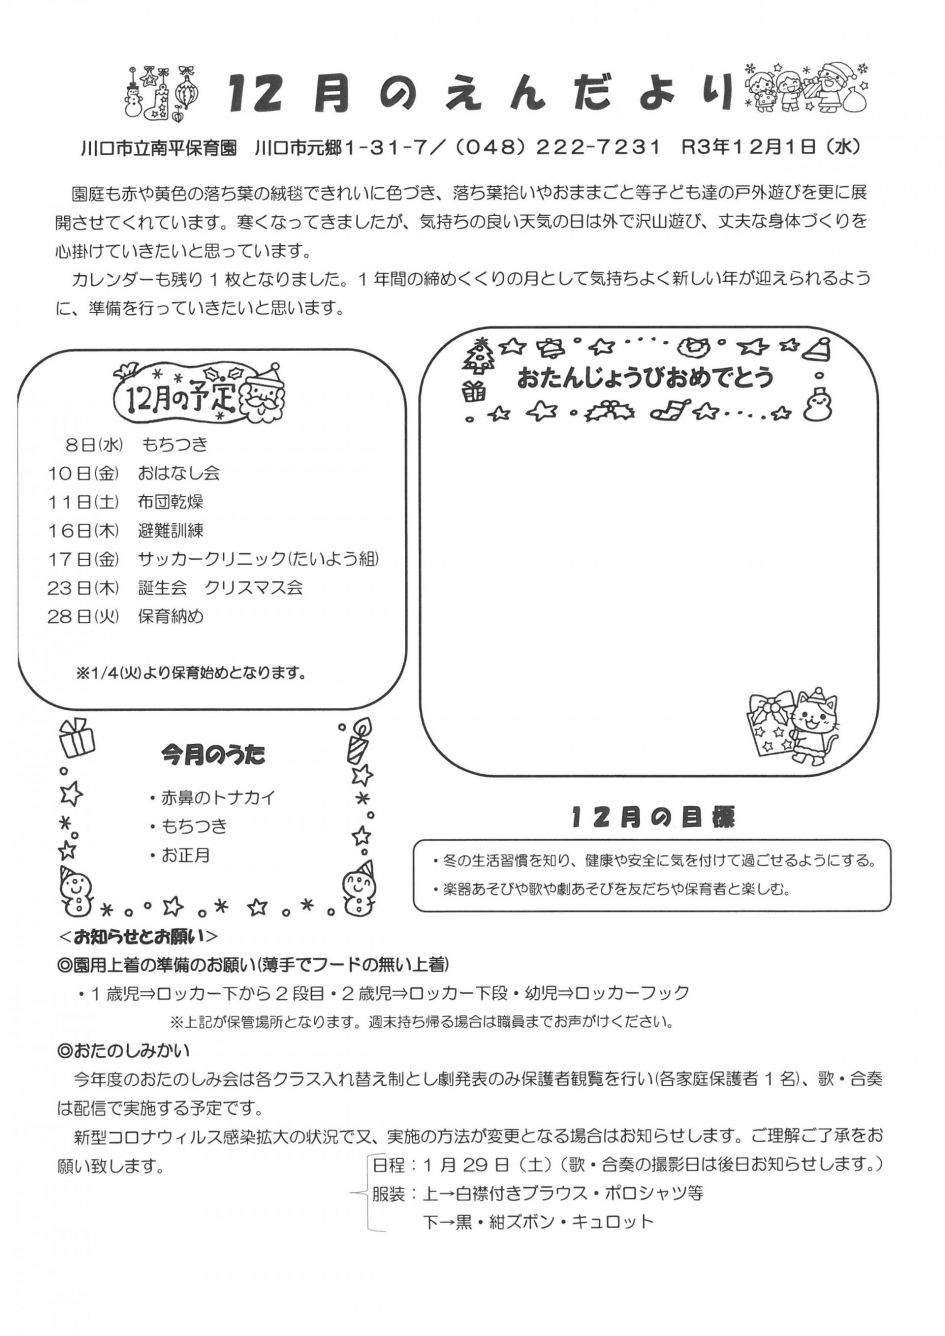 12月のえんだより
川口市立南平保育園　川口市元郷1-31-7／（048）222-7231　R3年12月1日（水）
園庭も赤や黄色の落ち葉の絨毯できれいに色づき、落ち葉拾いやおままごと等子ども達の戸外遊びを更に展
開させてくれています。寒くなってきましたが、気持ちの良い天気の日は外で沢山遊び、丈夫な身体づくりを
心掛けていきたいと思っています。
カレンダーも残り1枚となりました。1年間の締めくくりの月として気持ちよく新しい年が迎えられるよう
に、準備を行っていきたいと思います。
12月の予定
8日(水)　もちつき
10日(金)　おはなし会
11日(土)　布団乾燥
16日(木)　避難訓練
17日(金)　サッカークリニック(たいよう組)
23日(木)　誕生会　クリスマス会
28日(火)　保育納め
※1/4(火)より保育始めとなります。
おたんじょうびおめでとう
今月のうた
・赤鼻のトナカイ
・もちつき
・お正月
12月の目標
・冬の生活習慣を知り、健康や安全に気を付けて過ごせるようにする。
・楽器あそびや歌や劇あそびを友だちや保育者と楽しむ。
＜お知らせとお願い＞
◎園用上着の準備のお願い(薄手でフードの無い上着)
・1歳児⇒ロッカー下から2段目・2歳児⇒ロッカー下段・幼児⇒ロッカーフック
※上記が保管場所となります。週末持ち帰る場合は職員までお声がけください。
◎おたのしみかい
今年度のおたのしみ会は各クラス入れ替え制とし劇発表のみ保護者観覧を行い(各家庭保護者1名)、歌・合奏
は配信で実施する予定です。
新型コロナウィルス感染拡大の状況で又、実施の方法が変更となる場合はお知らせします。ご理解ご了承をお
願い致します。
日程：1月29日（土）（歌・合奏の撮影日は後日お知らせします。）
服装：上→白襟付きブラウス・ポロシャツ等
下→黒・紺ズボン・キュロット